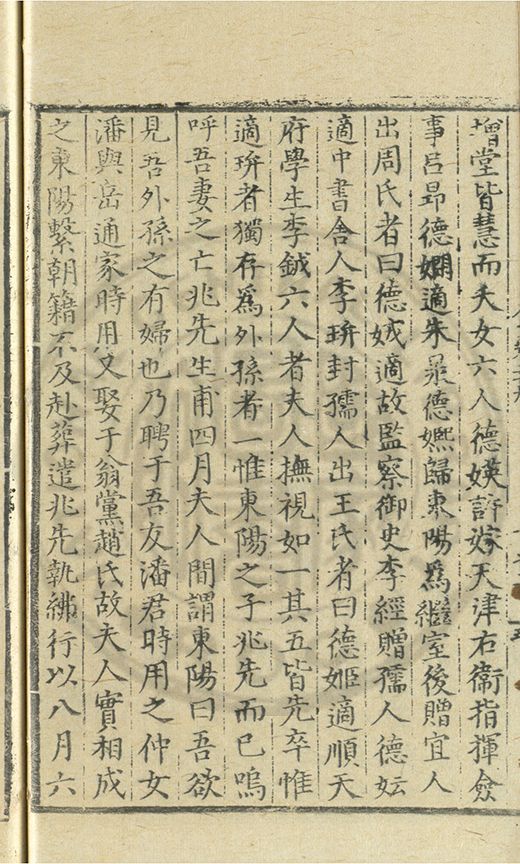 增堂皆慧而夭女六人德媖許嫁天津右衞指揮僉
事呂昂德嫻適朱杲德嬿歸東陽爲繼室後贈宜人
出周氏者曰德娀適故監察御史李經贈孺人德妘
適中書舍人李玡封孺人出王氏者曰德姬適順天
府學生李鉞六人者夫人撫視如一其五皆先卒惟
適玡者獨存爲外孫者一惟東陽之子兆先而已嗚
呼吾妻之亡兆先生甫四月夫人間謂東陽曰吾欲
見吾外孫之有婦也乃聘于吾友潘君時用之仲女
潘與岳通家時用又娶于翁黨趙氏故夫人實相成
之東陽繫朝籍不及赴葬遣兆先執紼行以八月六